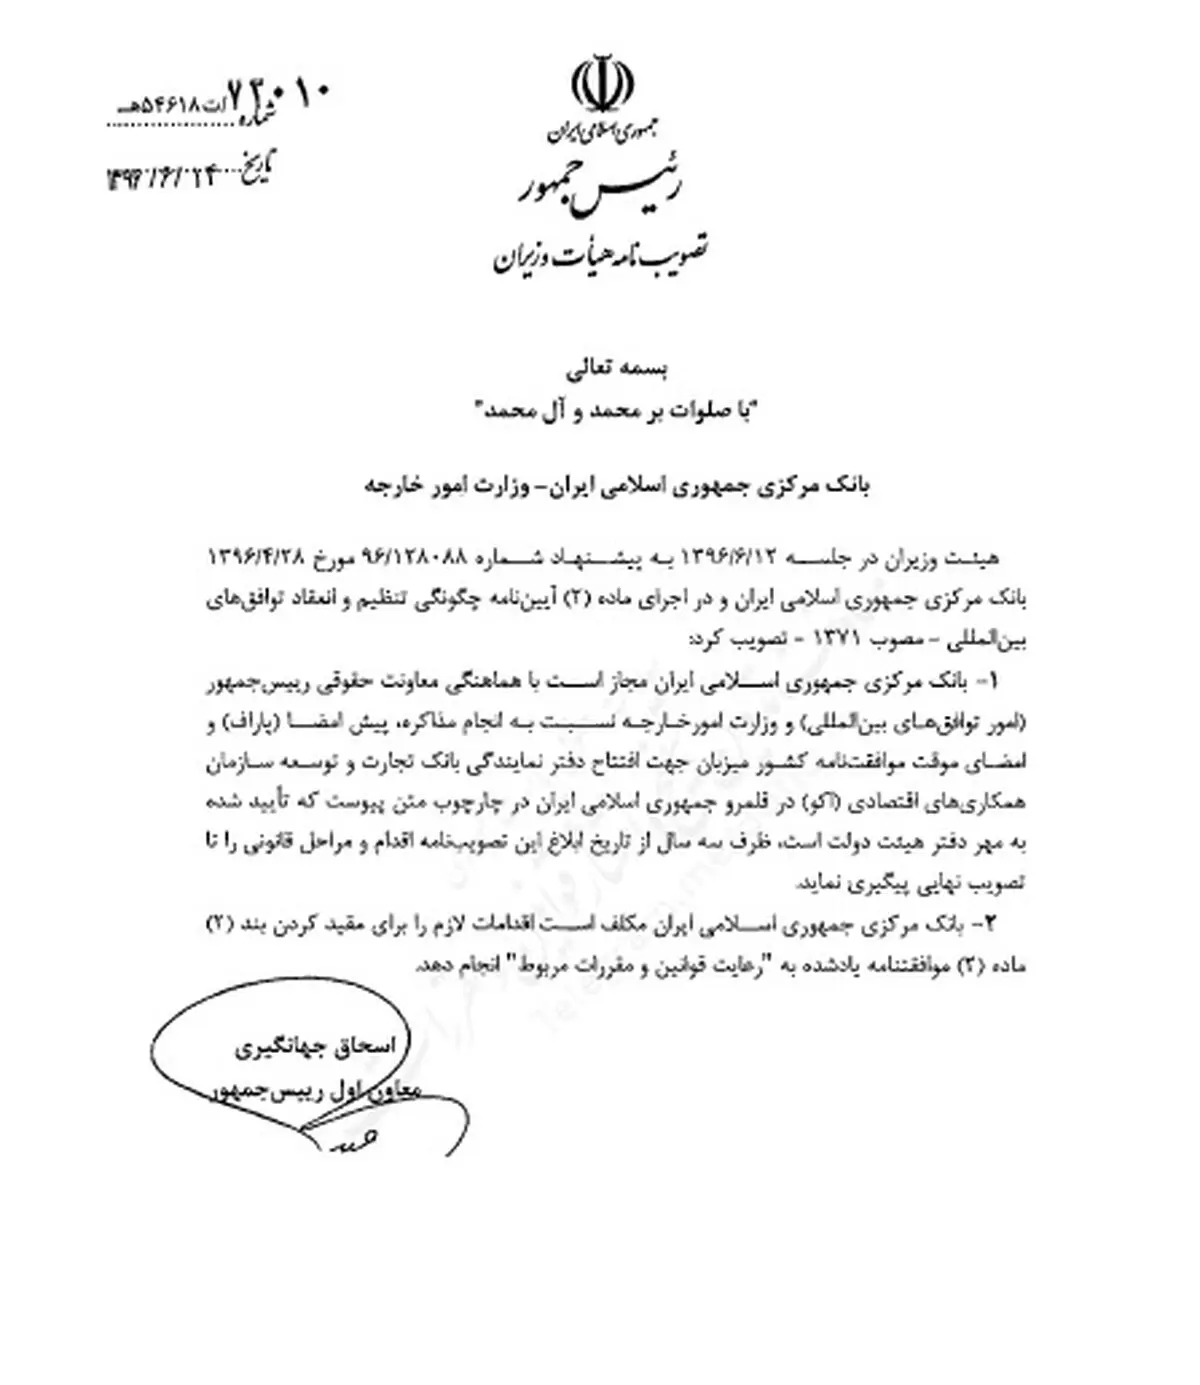 جمهوری اسلامی ایران
رئیس جمهور
تصویب نامه هیأت وزیران
شماره ۷۳۰۱۰/ت۵۴۶۱۸هـ
تاریخ ۱۳۹۶/۶/۲۴
بسمه تعالی
"با صلوات بر محمد و آل محمد"
بانک مرکزی جمهوری اسلامی ایران- وزارت امور خارجه
هیئت وزیران در جلسه ۱۳۹۶/۶/۱۲ به پیشنهاد شماره ۹۶/۱۲۸۰۸۸ مورخ ۱۳۹۶/۴/۲۸
بانک مرکزی جمهوری اسلامی ایران و در اجرای ماده (۲) آیین‌نامه چگونگی تنظیم و انعقاد توافق‌های
بین‌المللی - مصوب ۱۳۷۱ - تصویب کرد:
۱- بانک مرکزی جمهوری اسلامی ایران مجاز است با هماهنگی معاونت حقوقی رییس‌جمهور
(امور توافق‌های بین‌المللی) و وزارت امورخارجه نسبت به انجام مذاکره، پیش امضا (پاراف) و
امضای موقت موافقت‌نامه کشور میزبان جهت افتتاح دفتر نمایندگی بانک تجارت و توسعه سازمان
همکاری‌های اقتصادی (اکو) در قلمرو جمهوری اسلامی ایران در چارچوب متن پیوست که تأیید شده
به مهر دفتر هیئت دولت است، ظرف سه سال از تاریخ ابلاغ این تصویب‌نامه اقدام و مراحل قانونی را تا
تصویب نهایی پیگیری نماید.
۲- بانک مرکزی جمهوری اسلامی ایران مکلف است اقدامات لازم را برای مقید کردن بند (۲)
ماده (۲) موافقتنامه یادشده به "رعایت قوانین و مقررات مربوط" انجام دهد.
اسحاق جهانگیری
معاون اول رییس‌جمهور